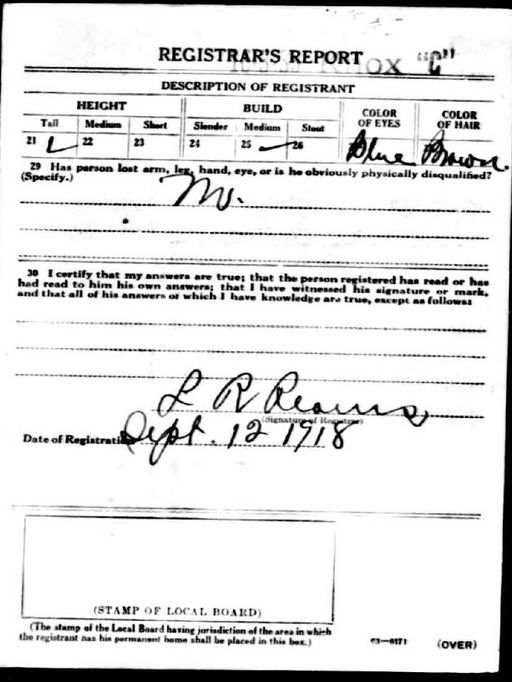 REGISTRAR'S REPORT
KNOX "C"
DESCRIPTION OF REGISTRANT
HEIGHT BUILD COLOR OF EYES COLOR OF HAIR
Tall Medium Short Slender Medium Stout
21 22 23 24 25 26 Blue Brown.
29 Has person lost arm, leg, hand, eye, or is he obviously physically disqualified?
(Specify.)
No.
30 I certify that my answers are true; that the person registered has read or has
had read to him his own answers; that I have witnessed his signature or mark,
and that all of his answers of which I have knowledge are true, except as follows:
L R Reams
(Signature of Registrar)
Date of Registration Sept. 12 1918
(STAMP OF LOCAL BOARD)
(The stamp of the Local Board having jurisdiction of the area in which
the registrant has his permanent home shall be placed in this box.)
03—6171 (OVER)